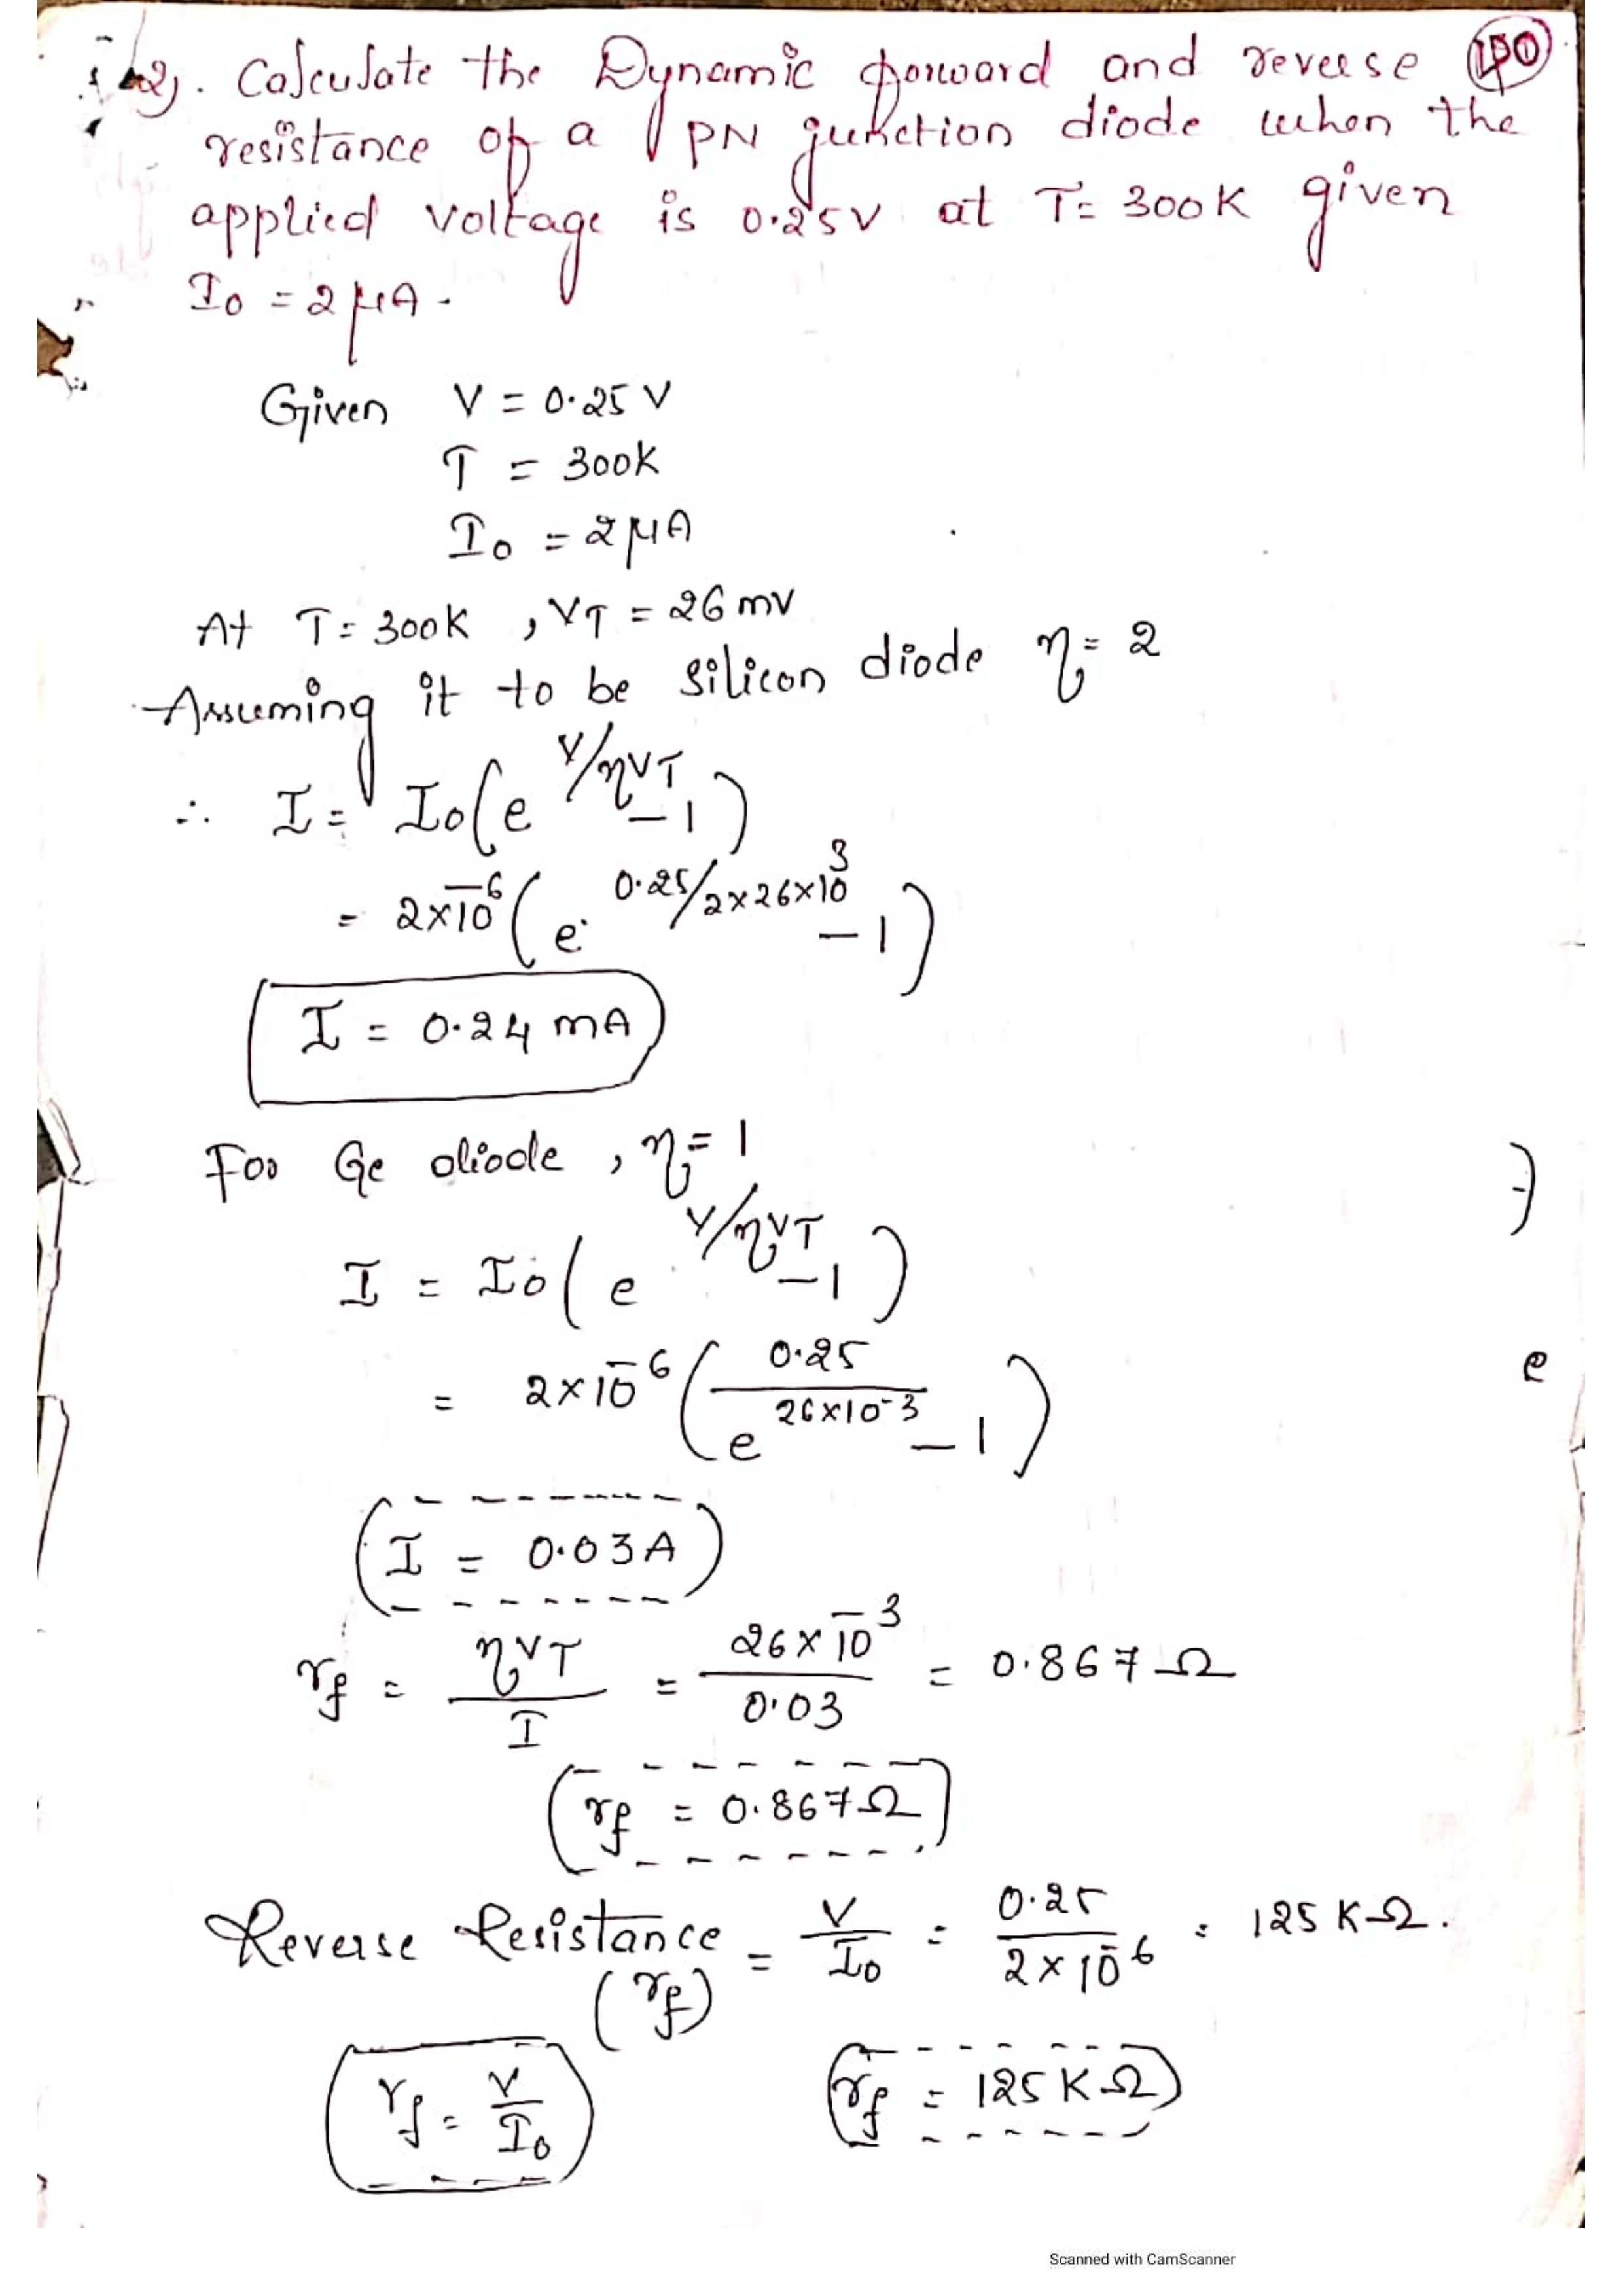 2). Calculate the Dynamic forward and reverse
resistance of a PN junction diode when the
applied voltage is 0.25V at T= 300K given
I0 = 2μA.
Given V = 0.25 V
T = 300K
I0 = 2μA
At T= 300K , VT = 26 mV
Assuming it to be silicon diode η= 2
∴ I = I0(e^V/ηVT -1)
= 2×10^-6 (e^0.25/2×26×10^3 -1)
I = 0.24 mA
For Ge diode , η= 1
I = I0(e^V/ηVT -1)
= 2×10^-6 (e^0.25/26×10^-3 -1)
I = 0.03A
rf = ηVT/I = 26×10^-3/0.03 = 0.867 Ω
rf = 0.867Ω
Reverse Resistance (rf) = V/I0 = 0.25/2×10^-6 = 125 KΩ.
rf = V/I0
rf = 125 KΩ
Scanned with CamScanner